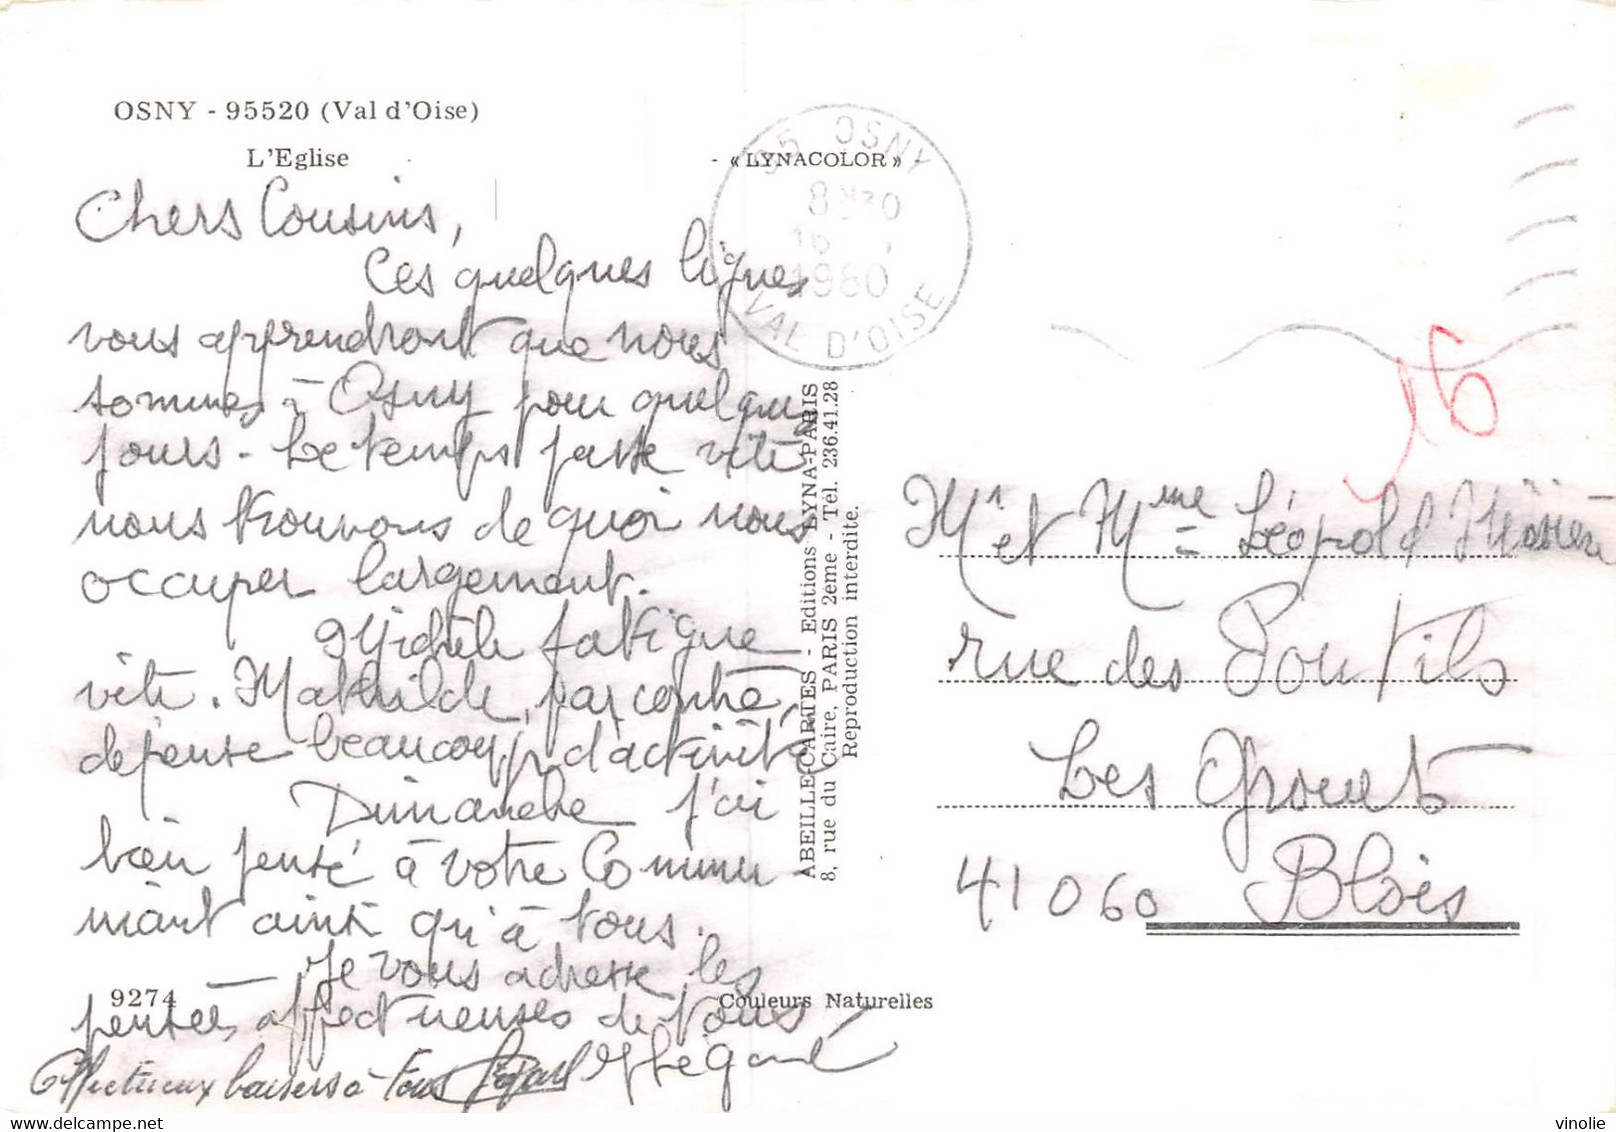 OSNY - 95520 (Val d'Oise)
L'Eglise
- « LYNACOLOR »
95 OSNY
8H30
16
1980
VAL D'OISE
Chers Cousins,
Ces quelques lignes
vous apprendront que nous
sommes à Osny pour quelques
jours - Le temps passe vite
nous trouvons de quoi nous
occuper largement.
Michèle fatigue
vite. Mathilde, par contre,
dépense beaucoup d'activité
Dimanche j'ai
bien pensé à votre Commu -
niant ainsi qu'à tous.
Je vous adresse les
pensées affectueuses de tous
Affectueux baisers à Tous
ABEILLE-CARTES - Editions LYNA-PARIS
8, rue du Caire, PARIS 2eme - Tél. 236.41.28
Reproduction interdite.
16
Mr et Mme Léopold
rue des Poutils
Les Grouets
41060 Blois
9274
Couleurs Naturelles
delcampe.net
vinolie